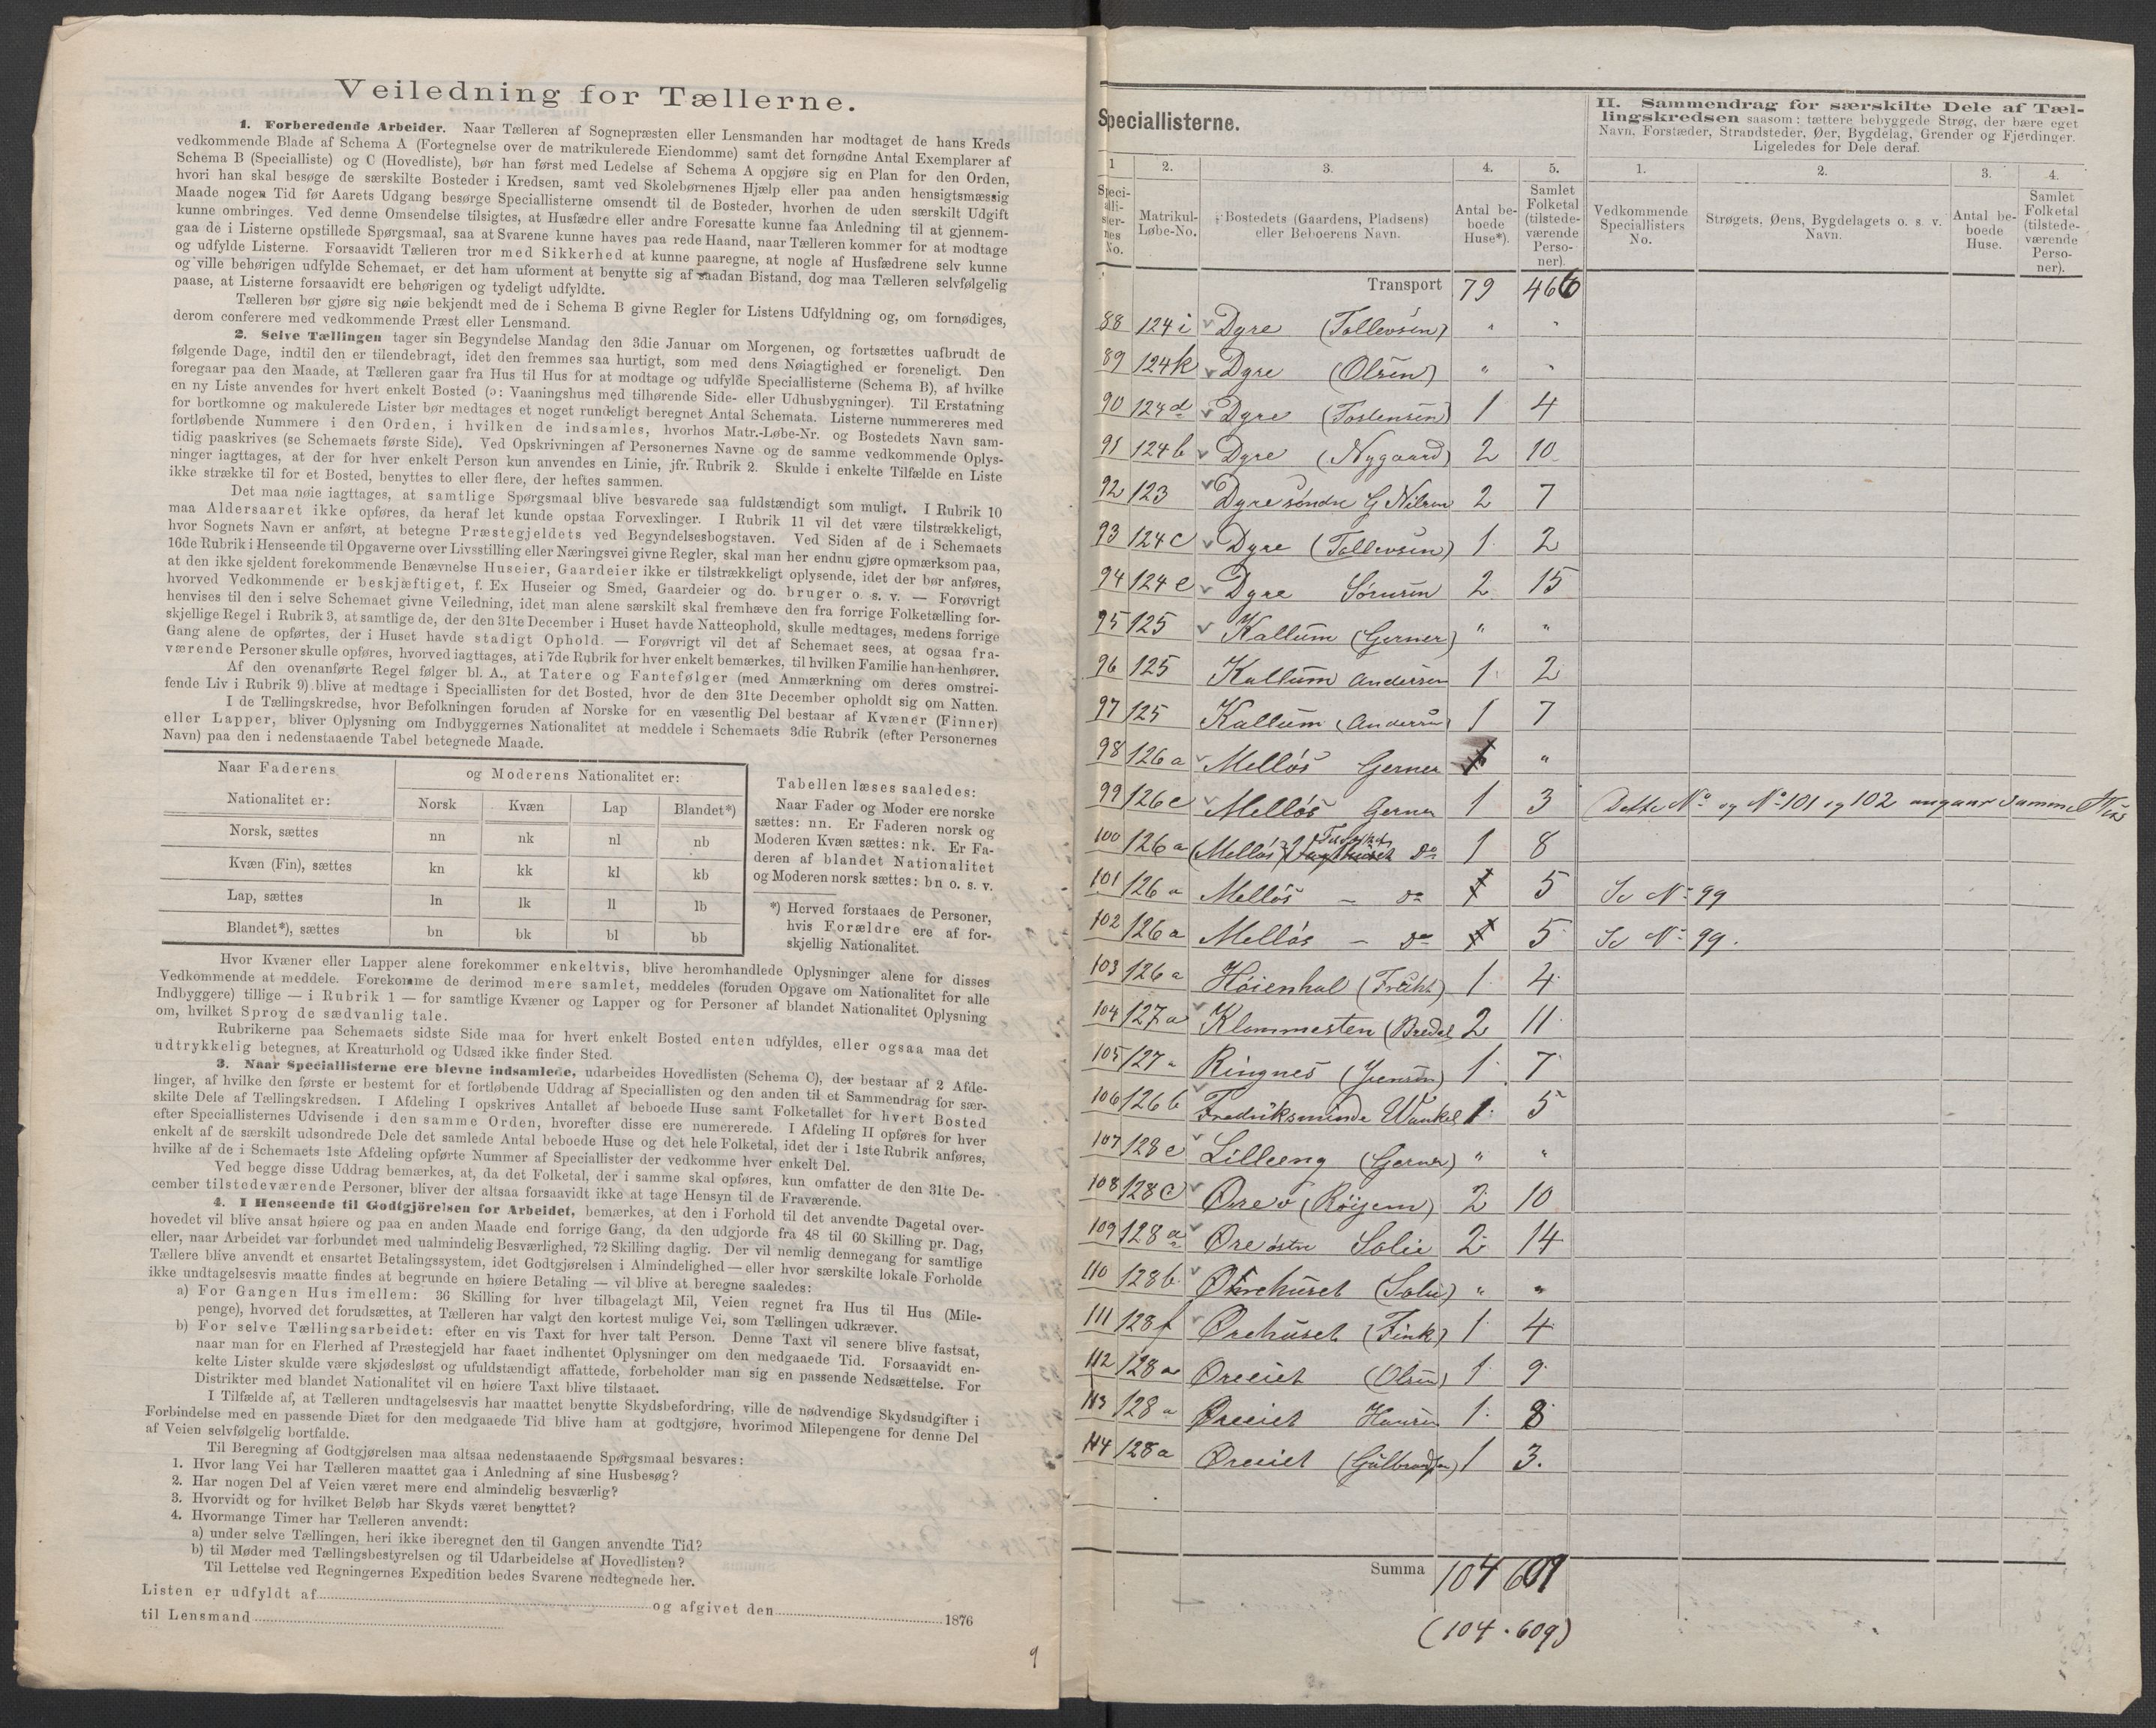 Veiledning for Tællerne.
1. Forberedende Arbeider. Naar Tælleren af Sognepræsten eller Lensmanden har modtaget de hans Kreds
vedkommende Blade af Schema A (Fortegnelse over de matrikulerede Eiendomme) samt det fornødne Antal Exemplarer af
Schema B (Specialliste) og C (Hovedliste), bør han først med Ledelse af Schema A opgjøre sig en Plan for den Orden,
hvori han skal besøge de særskilte Bosteder i Kredsen, samt ved Skolebørnenes Hjælp eller paa anden hensigtsmæssig
Maade nogen Tid før Aarets Udgang besørge Speciallisterne omsendt til de Bosteder, hvorhen de uden særskilt Udgift
kunne ombringes. Ved denne Omsendelse tilsigtes, at Husfædre eller andre Foresatte kunne faa Anledning til at gjennem-
gaa de i Listerne opstillede Spørgsmaal, saa at Svarene kunne haves paa rede Haand, naar Tælleren kommer for at modtage
og udfylde Listerne. Forsaavidt Tælleren tror med Sikkerhed at kunne paaregne, at nogle af Husfædrene selv kunne
og ville behørigen udfylde Schemaet, er det ham uforment at benytte sig af saadan Bistand, dog maa Tælleren selvfølgelig
paase, at Listerne forsaavidt ere behørigen og tydeligt udfyldte.
Tælleren bør gjøre sig nøie bekjendt med de i Schema B givne Regler for Listens Udfyldning og, om fornødiges,
derom conferere med vedkommende Præst eller Lensmand.
2. Selve Tællingen tager sin Begyndelse Mandag den 3die Januar om Morgenen, og fortsættes uafbrudt de
følgende Dage, indtil den er tilendebragt, idet den fremmes saa hurtigt, som med dens Nøiagtighed er foreneligt. Den
foregaar paa den Maade, at Tælleren gaar fra Hus til Hus for at modtage og udfylde Speciallisterne (Schema B), af hvilke
en ny Liste anvendes for hvert enkelt Bosted (ɔ: Vaaningshus med tilhørende Side- eller Udhusbygninger). Til Erstatning
for bortkomne og makulerede Lister bør medtages et noget rundeligt beregnet Antal Schemata. Listerne nummereres med
fortløbende Nummere i den Orden, i hvilken de indsamles, hvorhos Matr.-Løbe-Nr. og Bostedets Navn sam-
tidig paaskrives (se Schemaets første Side). Ved Opskrivningen af Personernes Navne og de samme vedkommende Oplys-
ninger iagttages, at der for hver enkelt Person kun anvendes en Linie, jfr. Rubrik 2. Skulde i enkelte Tilfælde en Liste
ikke strække til for et Bosted, benyttes to eller flere, der heftes sammen.
Det maa nøie iagttages, at samtlige Spørgsmaal blive besvarede saa fuldstændigt som muligt. I Rubrik 10
maa Aldersaaret ikke opføres, da heraf let kunde opstaa Forvexlinger. I Rubrik 11 vil det være tilstrækkeligt,
hvor Sognets Navn er anført, at betegne Præstegjeldets ved Begyndelsesbogstaven. Ved Siden af de i Schemaets
16de Rubrik i Henseende til Opgaverne over Livsstilling eller Næringsvei givne Regler, skal man her endnu gjøre opmærksom paa,
at den ikke sjeldent forekommende Benævnelse Huseier, Gaardeier ikke er tilstrækkeligt oplysende, idet der bør anføres,
hvorved Vedkommende er beskjæftiget, f. Ex Huseier og Smed, Gaardeier og do. bruger o. s. v. — Forøvrigt
henvises til den i selve Schemaet givne Veiledning, idet man alene særskilt skal fremhæve den fra forrige Folketælling for-
skjellige Regel i Rubrik 3, at samtlige de, der den 31te December i Huset havde Natteophold, skulle medtages, medens forrige
Gang alene de opførtes, der i Huset havde stadigt Ophold. — Forøvrigt vil det af Schemaet sees, at ogsaa fra-
værende Personer skulle opføres, hvorved iagttages, at i 7de Rubrik for hver enkelt bemærkes, til hvilken Familie han henhører.
Af den ovenanførte Regel følger bl. A., at Tatere og Fantefølger (med Anmærkning om deres omstrei-
fende Liv i Rubrik 9) blive at medtage i Speciallisten for det Bosted, hvor de den 31te December opholdt sig om Natten.
I de Tællingskredse, hvor Befolkningen foruden af Norske for en væsentlig Del bestaar af Kvæner (Finner)
eller Lapper, bliver Oplysning om Indbyggernes Nationalitet at meddele i Schemaets 3die Rubrik (efter Personernes
Navn) paa den i nedenstaaende Tabel betegnede Maade.
Naar Faderens og Moderens Nationalitet er:
Nationalitet er: Norsk Kvæn Lap Blandet*)
Norsk, sættes nn nk nl nb
Kvæn (Fin), sættes kn kk kl kb
Lap, sættes ln lk ll lb
Blandet*), sættes bn bk bl bb
Tabellen læses saaledes:
Naar Fader og Moder ere norske
sættes: nn. Er Faderen norsk og
Moderen Kvæn sættes: nk. Er Fa-
deren af blandet Nationalitet
og Moderen norsk sættes: bn o. s. v.
*) Herved forstaaes de Personer,
hvis Forældre ere af for-
skjellig Nationalitet.
Hvor Kvæner eller Lapper alene forekommer enkeltvis, blive heromhandlede Oplysninger alene for disses
Vedkommende at meddele. Forekomme de derimod mere samlet, meddeles (foruden Opgave om Nationalitet for alle
Indbyggere) tillige — i Rubrik 1 — for samtlige Kvæner og Lapper og for Personer af blandet Nationalitet Oplysning
om, hvilket Sprog de sædvanlig tale.
Rubrikerne paa Schemaets sidste Side maa for hvert enkelt Bosted enten udfyldes, eller ogsaa maa det
udtrykkelig betegnes, at Kreaturhold og Udsæd ikke finder Sted.
3. Naar Speciallisterne ere blevne indsamlede, udarbeides Hovedlisten (Schema C), der bestaar af 2 Afde-
linger, af hvilke den første er bestemt for et fortløbende Uddrag af Speciallisten og den anden til et Sammendrag for sær-
skilte Dele af Tællingskredsen. I Afdeling I opskrives Antallet af beboede Huse samt Folketallet for hvert Bosted
efter Speciallisternes Udvisende i den samme Orden, hvorefter disse ere numererede. I Afdeling II opføres for hver
enkelt af de særskilt udsondrede Dele det samlede Antal beboede Huse og det hele Folketal, idet der i 1ste Rubrik anføres,
hvilke af de i Schemaets 1ste Afdeling opførte Nummer af Speciallister der vedkomme hver enkelt Del.
Ved begge disse Uddrag bemærkes, at, da det Folketal, der i samme skal opføres, kun omfatter de den 31te De-
cember tilstedeværende Personer, bliver der altsaa forsaavidt ikke at tage Hensyn til de Fraværende.
4. I Henseende til Godtgjörelsen for Arbeidet, bemærkes, at den i Forhold til det anvendte Dagetal over-
hovedet vil blive ansat høiere og paa en anden Maade end forrige Gang, da den udgjorde fra 48 til 60 Skilling pr. Dag,
eller, naar Arbeidet var forbundet med ualmindelig Besværlighed, 72 Skilling daglig. Der vil nemlig dennegang for samtlige
Tællere blive anvendt et ensartet Betalingssystem, idet Godtgjørelsen i Almindelighed — eller hvor særskilte lokale Forholde
ikke undtagelsesvis maatte findes at begrunde en høiere Betaling — vil blive at beregne saaledes:
a) For Gangen Hus imellem: 36 Skilling for hver tilbagelagt Mil, Veien regnet fra Hus til Hus (Mile-
penge), hvorved det forudsættes, at Tælleren har valgt den kortest mulige Vei, som Tællingen udkræver.
b) For selve Tællingsarbeidet: efter en vis Taxt for hver talt Person. Denne Taxt vil senere blive fastsat,
naar man for en Flerhed af Præstegjeld har faaet indhentet Oplysninger om den medgaaede Tid. Forsaavidt en-
kelte Lister skulde være skjødesløst og ufuldstændigt affattede, forbeholder man sig en passende Nedsættelse. For
Distrikter med blandet Nationalitet vil en høiere Taxt blive tilstaaet.
I Tilfælde af, at Tælleren undtagelsesvis har maattet benytte Skydsbefordring, ville de nødvendige Skydsudgifter i
Forbindelse med en passende Diæt for den medgaaede Tid blive ham at godtgjøre, hvorimod Milepengene for denne Del
af Veien selvfølgelig bortfalde.
Til Beregning af Godtgjørelsen maa altsaa nedenstaaende Spørgsmaal besvares:
1. Hvor lang Vei har Tælleren maattet gaa i Anledning af sine Husbesøg?
2. Har nogen Del af Veien været mere end almindelig besværlig?
3. Hvorvidt og for hvilket Beløb har Skyds været benyttet?
4. Hvormange Timer har Tælleren anvendt:
a) under selve Tællingen, heri ikke iberegnet den til Gangen anvendte Tid?
b) til Møder med Tællingsbestyrelsen og til Udarbeidelse af Hovedlisten?
Til Lettelse ved Regningernes Expedition bedes Svarene nedtegnede her.
Listen er udfyldt af og afgivet den
til Lensmand 1876
9
Speciallisterne.
1 2. 3. 4. 5.
Speci-
alli-
ster-
nes
No.
Matrikul-
Løbe-No.
Bostedets (Gaardens, Pladsens)
eller Beboerens Navn.
Antal be-
boede
Huse*).
Samlet
Folketal
(tilstede-
værende
Perso-
ner).
II. Sammendrag for særskilte Dele af Tæl-
lingskredsen saasom: tættere bebyggede Strøg, der bære eget
Navn, Forstæder, Strandsteder, Øer, Bygdelag, Grender og Fjerdinger.
Ligeledes for Dele deraf.
1. 2. 3. 4.
Vedkommende
Speciallisters
No.
Strøgets, Øens, Bygdelagets o. s. v.
Navn.
Antal be-
boede
Huse.
Samlet
Folketal
(tilstede-
værende
Perso-
ner).
Transport 79 466
88 124 i Dyre (Tollevsen) " "
89 124k Dyre (Olsen) " "
90 124d Dyre (Tostensen) 1 4
91 124b Dyre (Nygaard) 2 10
92 123 Dyre søndre G Nilsen 2 7
93 124c Dyre (Tollevsen) 1 2
94 124e Dyre Sørensen 2 15
95 125 Kallum (Gerner) " "
96 125 Kallum Andersen 1 2
97 125 Kallum (Andersen) 1 7
98 126a Melløs Gerner "
99 126e Melløs Gerner 1 3 Dette No og No 101 og 102 angaar samme Hus
100 126a (Melløs) do 1 8
101 126a Melløs — do 1 5 Se No 99
102 126a Melløs — do 1 5 Se No 99.
103 126a Høienhal (Frikt) 1 4
104 127a Klommesten (Bredal 2 11
105 127a Ringnes (Jensen) 1 7
106 126b Fredriksminde Wankel 1 5
107 128e Lilleeng (Gerner) " "
108 128c Øre v (Röijem) 2 10
109 128a Øre østre Solie 2 14
110 128b Ørehuset (Solie) " "
111 128f Ørehuset (Fink) 1 4
112 128a Øreeiet (Olsen) 1 9
113 128a Øreeiet Hansen 1 8
114 128a Øreeiet (Gulbrandsen) 1 3.
Summa 104 609
(104 . 609)